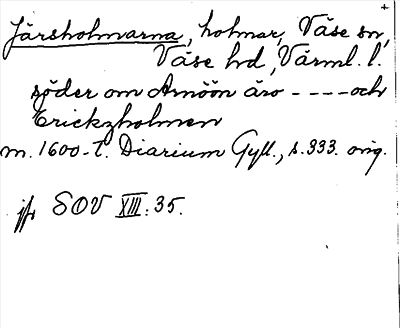 Järsholmarna, holmar, Väse sn,
Väse hd, Värml. l.
söder om Arnöön äro ---- och
Erickzholmen
m. 1600-t. Diarium Gyll., s. 333. orig.
jfr SOV XIII: 35.